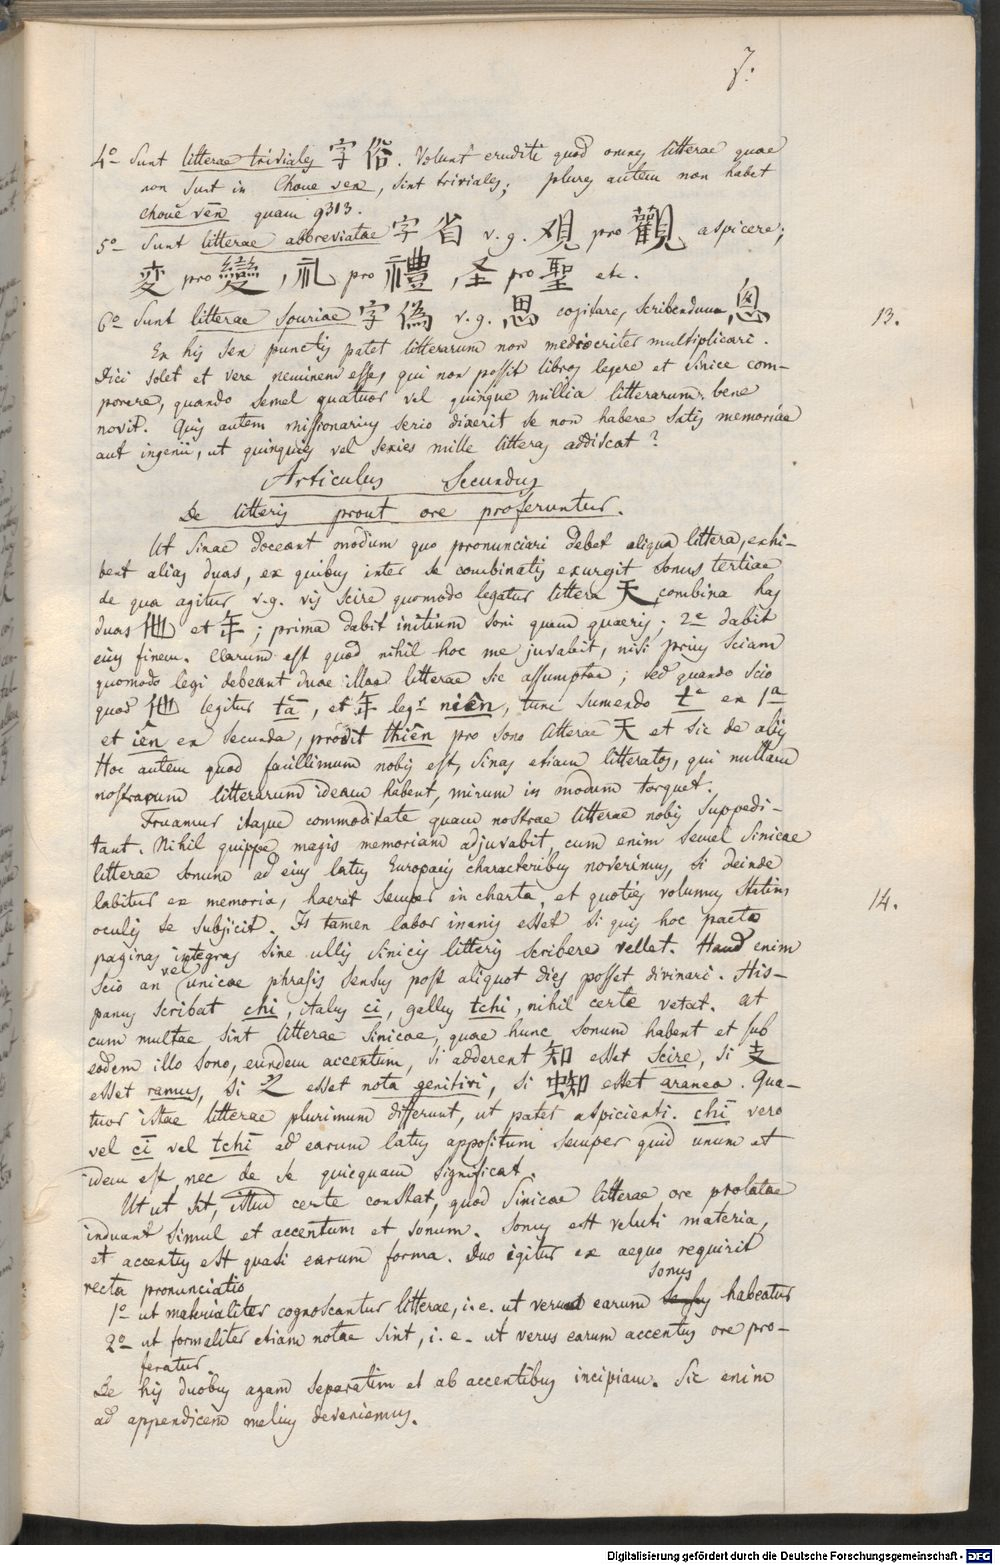 7.
4º Sunt litterae triviales 字 俗. Volunt eruditi quod omnes litterae quae
non sunt in Choue ven, sint triviales; plures autem non habet
chouĕ vēn quam 9313.
5º Sunt litterae abbreviatae 字 省 v.g. 覌 pro 觀 aspicere;
変 pro 變, 礼 pro 禮, 圣 pro 聖 etc.
6º Sunt litterae spuriae 字 偽 v.g. 思 cogitare, scribendum 恖
13.
Ex his sex punctis patet litterarum non mediocriter multiplicari.
Dici solet et vere neminem esse, qui non possit libros legere et sinice com-
ponere, quando semel quatuor vel quinque millia litterarum bene
novit. Quis autem missionarius serio dixerit se non habere satis memoriae
aut ingenii, ut quinquies vel sexies mille litteras addiscat?
Articulus Secundus
De litteris prout ore proferuntur.
Ut Sinae doceant modum quo pronunciari debet aliqua littera, exhi-
bent alias duas, ex quibus inter se combinatis exurgit sonus tertiae
de qua agitur v.g. vis scire quomodo legatur littera 天 combina has
duas 他 et 年; prima dabit initium soni quem quaeris; 2ª dabit
ejus finem. Clarum est quod nihil hoc me juvabit, nisi prius sciam
quomodo legi debeant duae illae litterae sic assumptae; sed quando scio
quod 他 legitur tā, et 年 legr niên, tunc sumendo t ex 1ª
et iên ex secunda, prodit thiên pro sono litterae 天 et sic de aliis
Hoc autem quod facillimum nobis est, Sinas etiam litteratos, qui nullam
nostrarum litterarum ideam habent, mirum in modum torquet.
Fruamur itaque commoditate quam nostrae litterae nobis suppedi-
tant. Nihil quippe magis memoriam adjuvabit, cum enim semel Sinicae
litterae sonum ad ejus latus Europaeis characteribus noverimus, si deinde
labitur ex memoria, haeret semper in charta, et quoties volumus statim
14.
oculis se subjicit. Is tamen labor inanis esset si quis hoc pacto
paginas integras sine ullis sinicis litteris scribere vellet. Haud enim
scio an vel unicae phrasis sensus post aliquot dies posset divinari. His-
panus scribat chi, italus ci, gallus tchi, nihil certe vetat. At
cum multae sint litterae sinicae, quae hunc sonum habent et sub
eodem illo sono, eundem accentum, si adderent 知 esset scire, si 支
esset ramus, si 之 esset nota genitivi, si 蜘 esset aranea. Qua-
tuor istae litterae plurimum differunt, ut patet aspicienti. chī vero
vel cī vel tchī ad earum latus appositum semper quid unum et
idem est, nec de se quicquam significat.
Ut ut sit, istud certe constat, quod Sinicae litterae ore prolatae
induant simul et accentum et sonum. Sonus est veluti materia,
et accentus est quasi earum forma. Duo igitur ex aequo requirit
recta pronunciatio
1º ut materialiter cognoscantur litterae, i.e. ut verus earum sonus habeatur
2º ut formaliter etiam notae sint, i.e. ut verus earum accentus ore pro-
feratur
De his duobus agam separatim et ab accentibus incipiam. Sic enim
ad appendicem melius deveniemus.
Digitalisierung gefördert durch die Deutsche Forschungsgemeinschaft - DFG